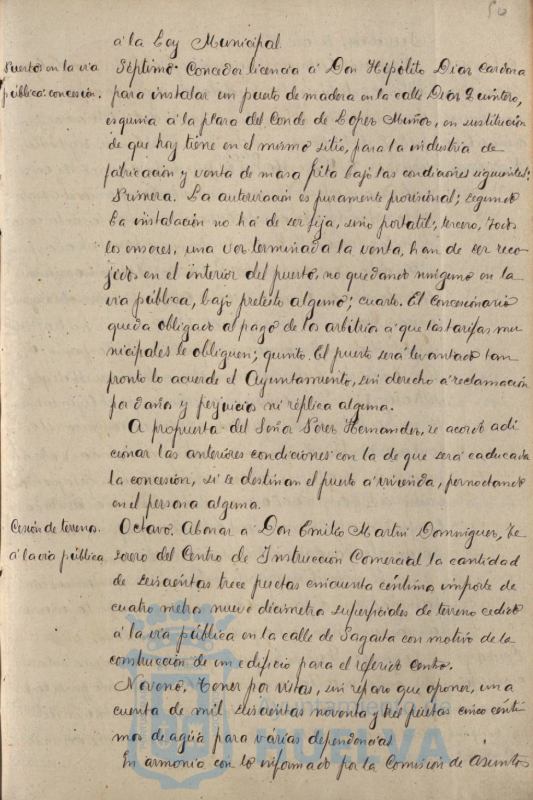 50
á la Ley Municipal.
Puestos en la vía
pública: concesión.
Séptimo. Conceder licencia á Don Hipólito Díaz Cardona
para instalar un puesto de madera en la calle Díaz Quintero,
esquina á la plaza del Conde de López Muñoz, en sustitución
de que hoy tiene en el mismo sitio, para la industria de
fabricación y venta de masa frita bajo las condiciones siguientes:
Primera. La autorización es puramente provisional; segunda
La instalación no há de ser fija, sino portatil; tercero, todos
los enseres, una vez terminada la venta, han de ser reco-
jidos en el interior del puesto, no quedando ninguno en la
vía pública, bajo pretesto alguno; cuarto. El concesionario
queda obligado al pago de los arbitrios á que las tarifas mu
nicipales le obliguen; quinto. El puesto será levantado tan
pronto lo acuerde el Ayuntamiento, sin derecho á reclamación
por daños y perjuicios ni réplica alguna.
A propuesta del Señor Pérez Hernandez, se acordó adi
cionar las anteriores condiciones con la de que será caducada
la concesión, si se destinan el puesto á vivienda, pernoctando
en el persona alguna.
Cesión de terrenos
á la vía pública
Octavo. Abonar á Don Emilio Martín Domínguez, Te
sorero del Centro de Instrucción Comercial la cantidad
de seiscientas trece pesetas cincuenta céntimos importe de
cuatro metros nueve decimetros superficiales de terreno cedido
á la vía pública en la calle de Sagasta con motivo de la
construcción de un edificio para el referido centro.
Noveno. Tener por vistas, sin reparo que oponer, una
cuenta de mil seiscientas noventa y tres pesetas cinco centi
mos de agua para varias dependencias
En armonia con lo informado por la Comisión de Asuntos
Ayuntamiento de
HUELVA